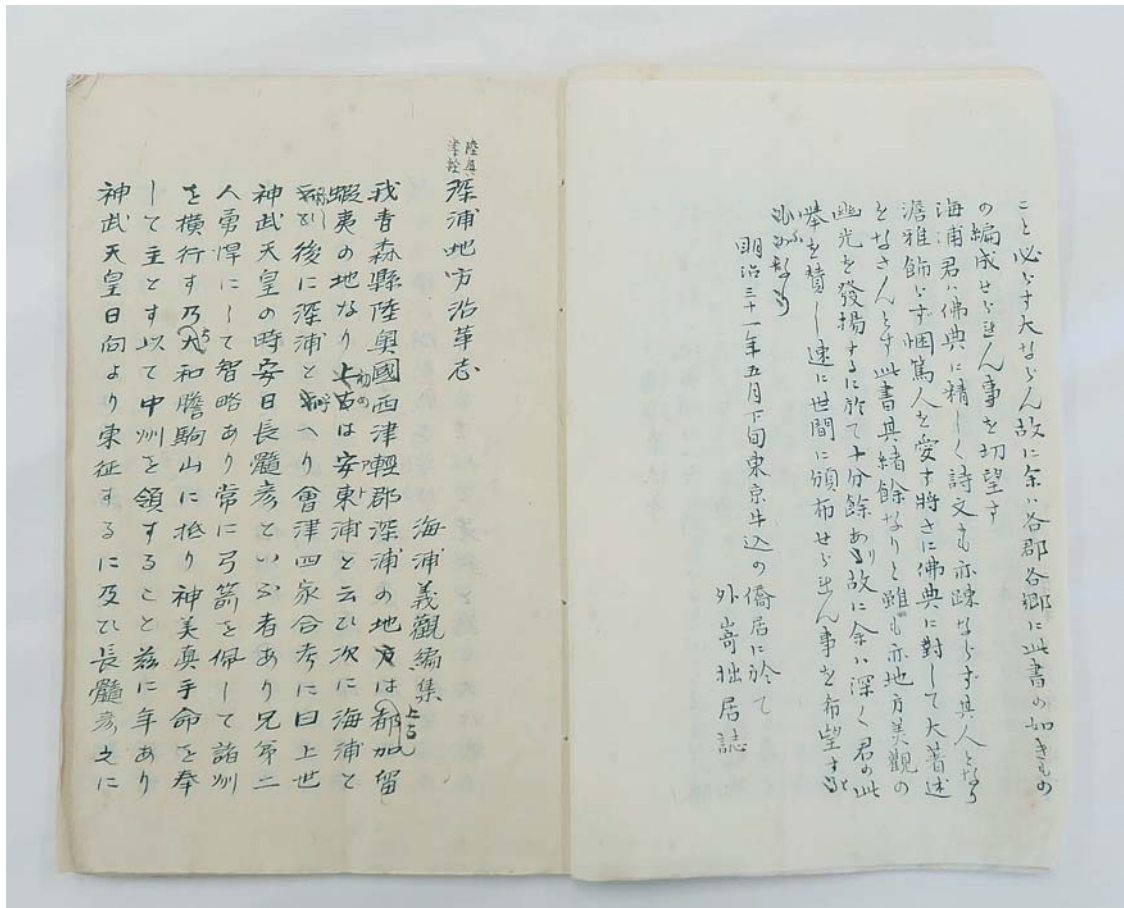 こと必らず大ならん故に余ハ各郡各郷に此書の如きもの
の編成せられん事を切望す
海浦君ハ佛典に精しく詩文も亦疎ならず其人となり
澹雅飾らず悃篤人を愛す將さに佛典に對して大著述
をなさんとす此書其緒餘なりと雖も亦地方美觀の
幽光を發揚するに於て十分餘あり故に余ハ深く君の此
擧を賛し速に世間に頒布せられん事を希望する
明治三十一年五月下旬東京牛込の僑居に於て
外崎拙居誌
陸奥津輕
深浦地方沿革志
海浦義觀編集
我青森縣陸奥國西津輕郡深浦の地は上古都加留
蝦夷の地なり初めは安東浦と云ひ次に海浦と
稱し後に深浦と呼へり會津四家合考に曰上世
神武天皇の時安日長髓彦といふ者あり兄弟二
人勇悍にして智略あり常に弓箭を佩して諸州
を横行す乃ち大和膽駒山に抵り神美真手命を奉
して主とす以て中州を領すること茲に年あり
神武天皇日向より東征するに及ひ長髓彦之に